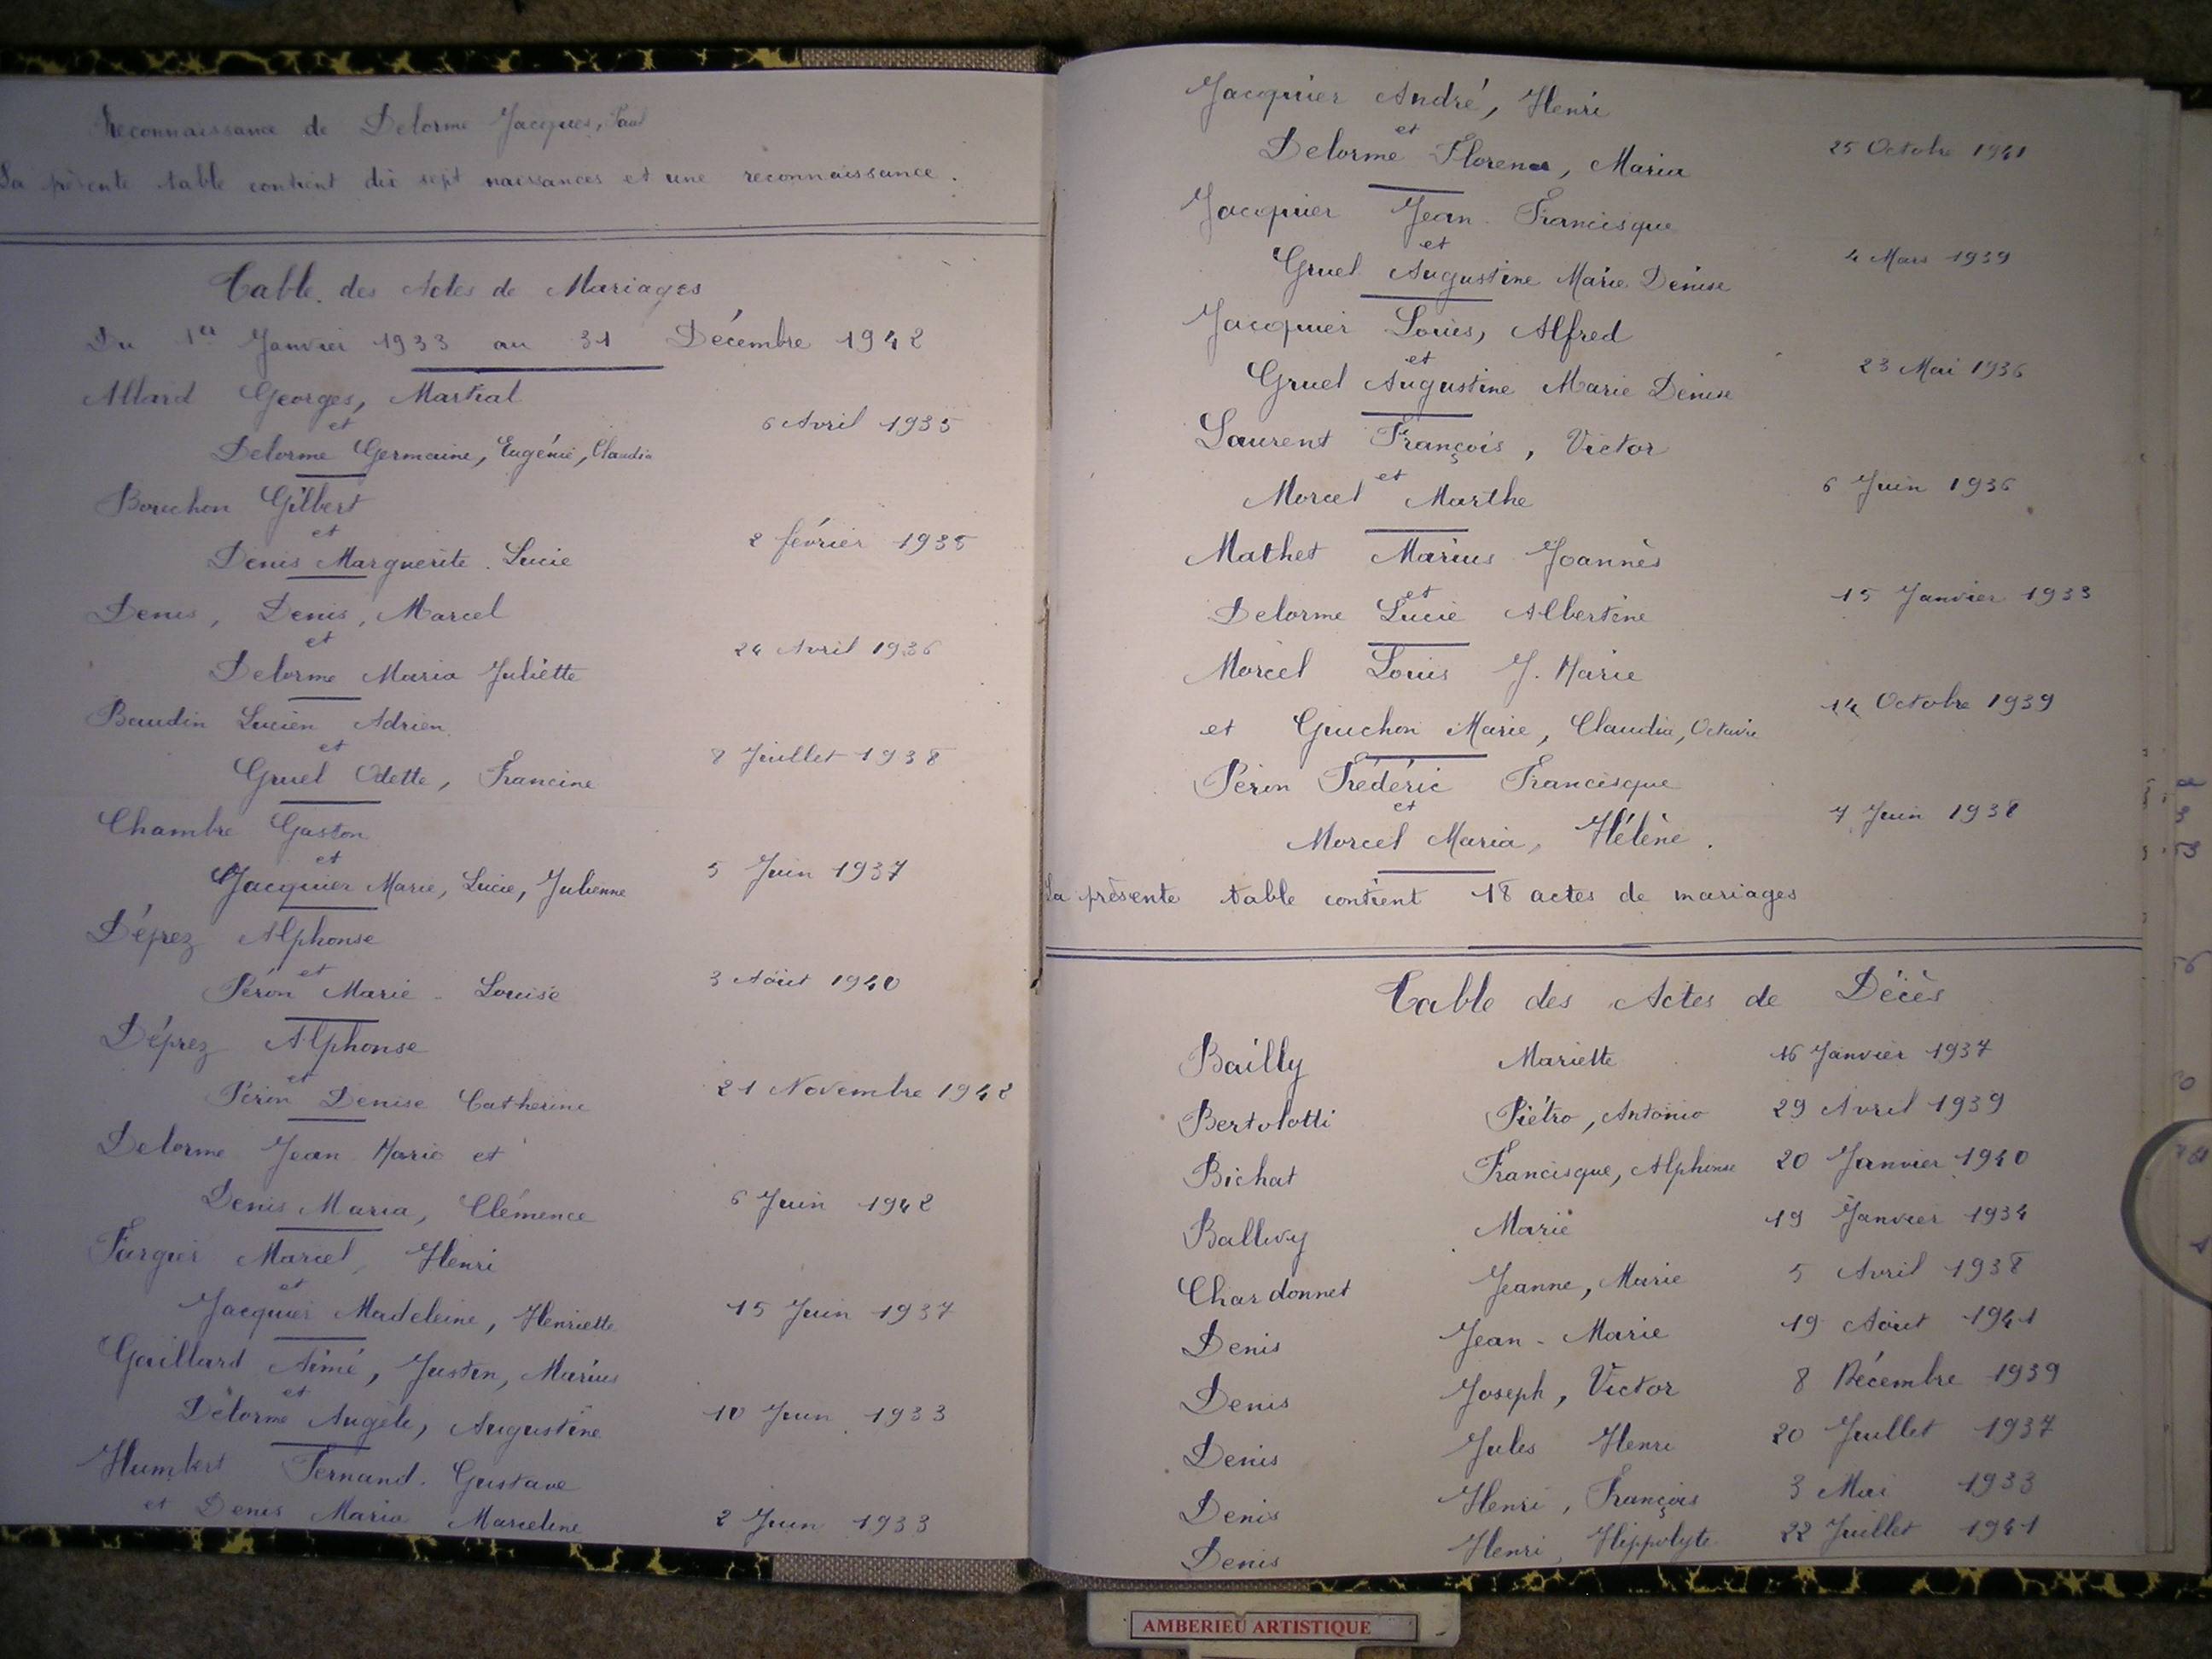 Reconnaissance de Delorme Jacques, Paul
La présente table contient dix sept naissances et une reconnaissance.
Table des Actes de Mariages
Du 1er Janvier 1933 au 31 Décembre 1942
Allard Georges, Martial
et
Delorme Germaine, Eugénie, Claudia 6 Avril 1935
Bouchon Gilbert
et
Denis Marguerite. Lucie 2 février 1935
Denis, Denis, Marcel
et
Delorme Maria Juliette 24 Avril 1936
Baudin Lucien Adrien
et
Gruel Odette, Francine 8 Juillet 1938
Chambre Gaston
et
Jacquier Marie, Lucie, Julienne 5 Juin 1937
Déprez Alphonse
et
Péron Marie - Louise 3 Août 1940
Déprez Alphonse
et
Périn Denise Catherine 21 Novembre 1942
Delorme Jean Marie et
Denis Maria, Clémence 6 Juin 1942
Farguer Marcel, Henri
et
Jacquier Madeleine, Henriette 15 Juin 1937
Gaillard Aimé, Justin, Marius
et
Delorme Angèle, Augustine 10 Juin 1933
Humbert Fernand. Gustave
et Denis Maria Marceline 2 Juin 1933
Jacquier André, Henri
et
Delorme Florence, Maria 25 Octobre 1941
Jacquier Jean Francisque
et
Gruel Augustine Marie Denise 4 Mars 1939
Jacquier Louis, Alfred
et
Gruel Augustine Marie Denise 23 Mai 1936
Laurent François, Victor
et
Morcel Marthe 6 Juin 1936
Mathet Marius Joannès
et
Delorme Lucie Albertine 15 Janvier 1933
Morcel Louis J. Marie
et Guichon Marie, Claudia, Octavie 14 Octobre 1939
Périn Frédéric Francisque
et
Morcel Maria, Hélène. 7 Juin 1938
La présente table contient 18 actes de mariages
Table des Actes de Décès
Bailly Mariette 16 Janvier 1937
Bertolotti Piétro, Antonio 29 Avril 1939
Bichat Francisque, Alphonse 20 Janvier 1940
Ballivy Marie 19 Janvier 1934
Chardonnet Jeanne, Marie 5 Avril 1938
Denis Jean - Marie 19 Août 1941
Denis Joseph, Victor 8 Décembre 1939
Denis Jules Henri 20 Juillet 1937
Denis Henri, François 3 Mai 1933
Denis Henri, Hippolyte 22 Juillet 1941
AMBERIEU ARTISTIQUE